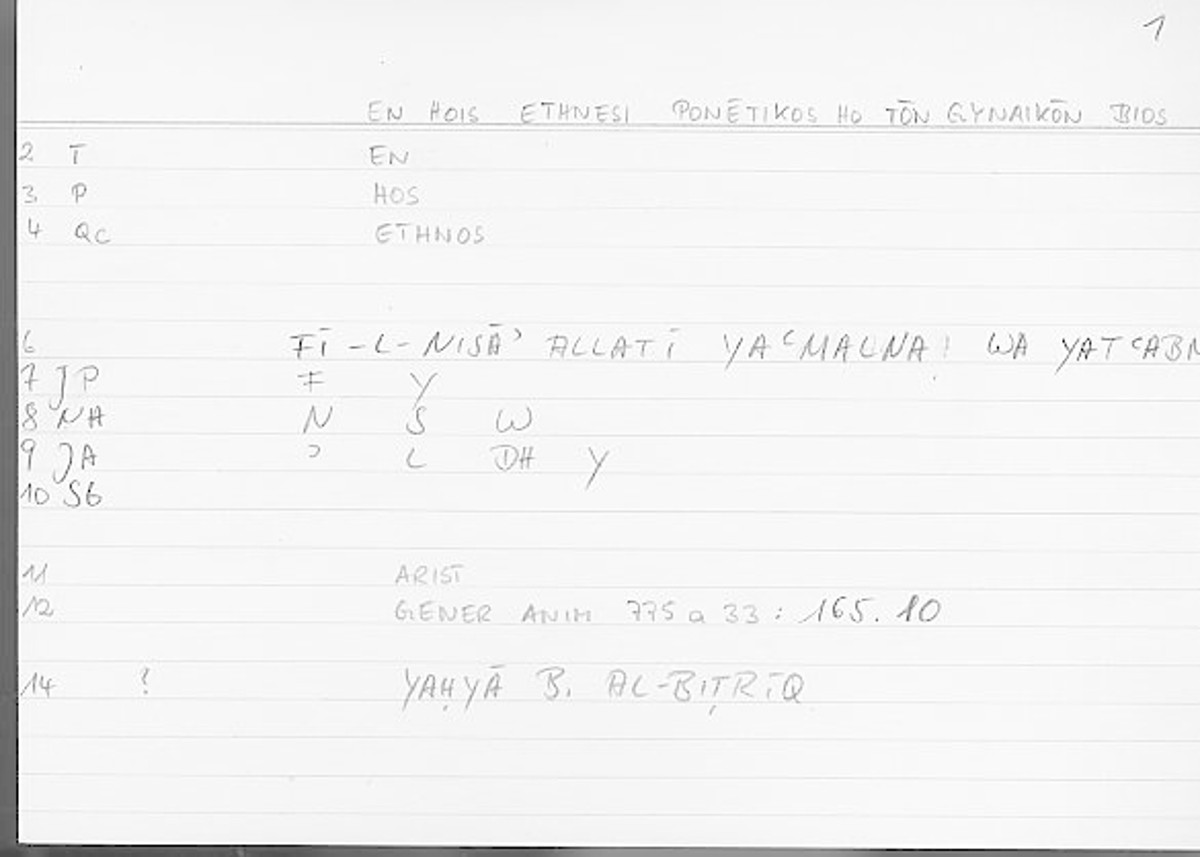 1
EN HOIS ETHNESI PONĒTIKOS HO TŌN GYNAIKŌN BIOS
2 T EN
3 P HOS
4 Qc ETHNOS
6 FĪ-L-NISĀʾ ALLATĪ YAʿMALNA! WA YATʿABN
7 JP F Y
8 NA N S W
9 JA ʾ L DH Y
10 S6
11 ARIST
12 GENER ANIM 775 a 33 : 165. 10
14 ? YAḤYĀ B. AL-BIṬRĪQ